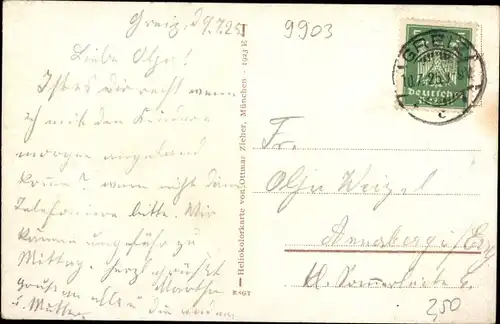 Greiz, d 9.7.25
Liebe Olga!
Ist es dir recht wenn
ich mit den Kindern
morgen
komme? wenn nicht dann
Telefoniere bitte. Wir
kämen ungefähr zu
Mittag. herzl. grüßt
Martha
alle u die
u. Mutter
Heliokolorkarte von Ottmar Zieher, München - 1923 E
RSGT
9903
GREIZ
Deutsches
c
Fr.
Olga Weizel
Annaberg i/Erz
2,50